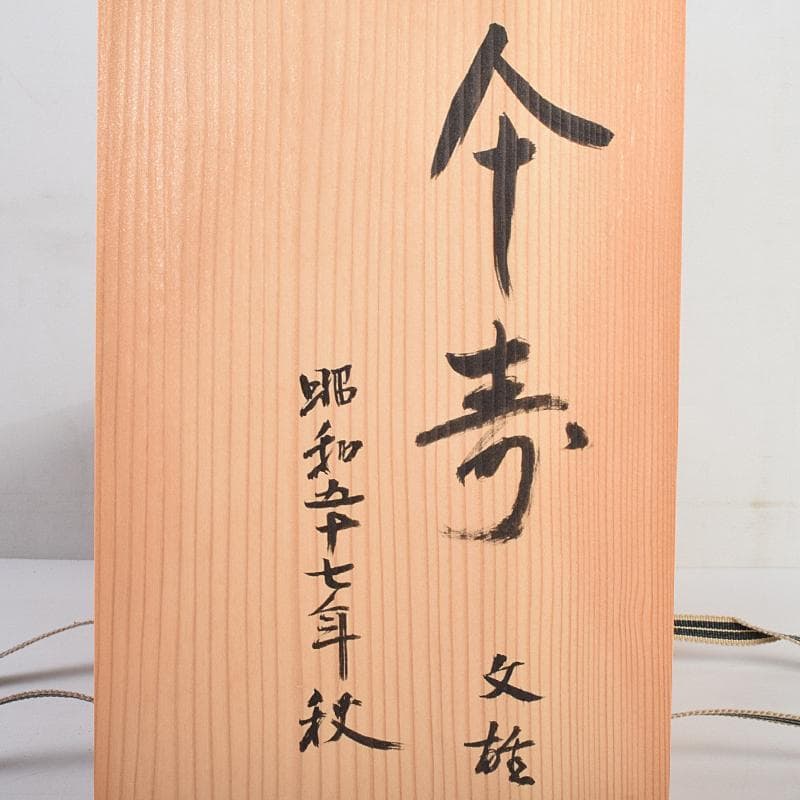 仐寿
文雄
昭和五十七年秋